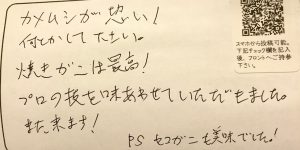 カメムシが恐い！
何とかして下さい。
焼きがには最高！
プロの技を味あわせていただきました。
また来ます！
PS セコガニも美味でした！
スマホから投稿可能。
下記チェック欄を記入
後、フロントへご持参
下さい。